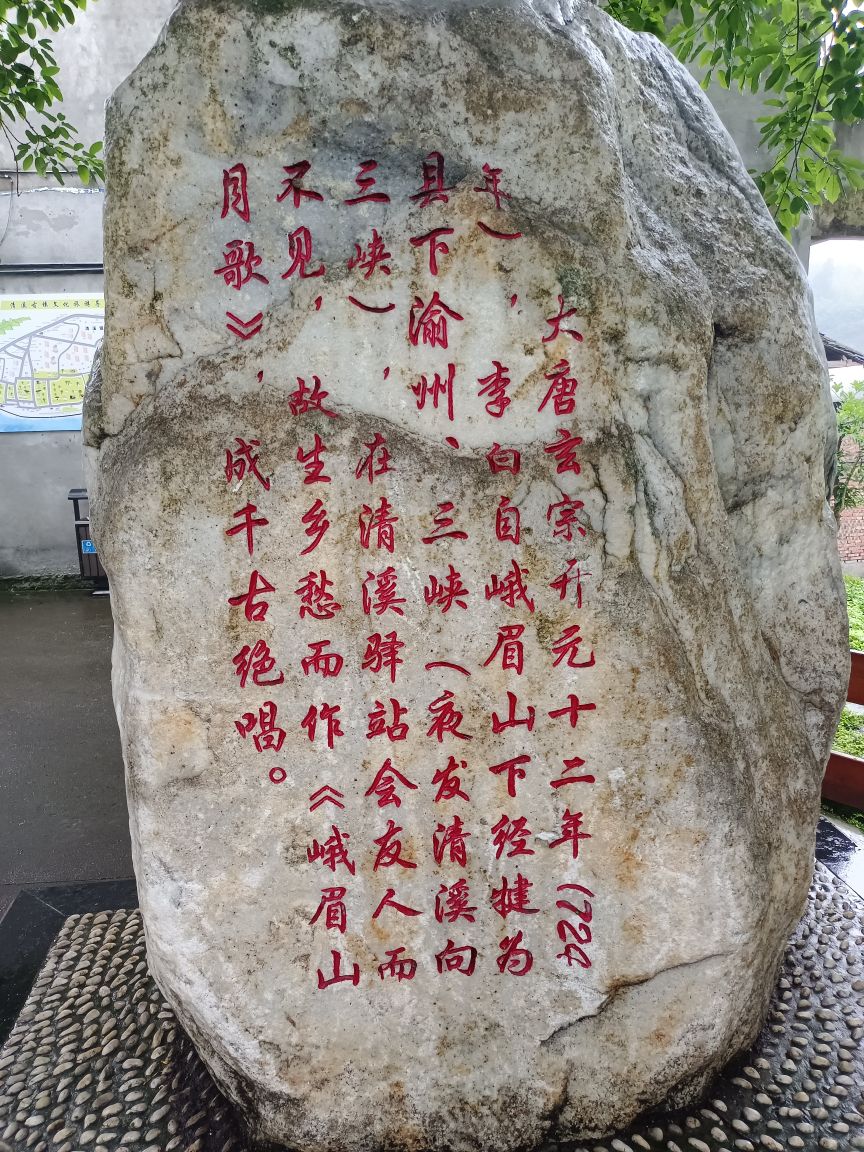 大唐玄宗开元十二年(724
年),李白自峨眉山下经犍为
县下渝州、三峡(夜发清溪向
三峡),在清溪驿站会友人而
不见,故生乡愁而作《峨眉山
月歌》,成千古绝唱。
清溪古镇文化旅游